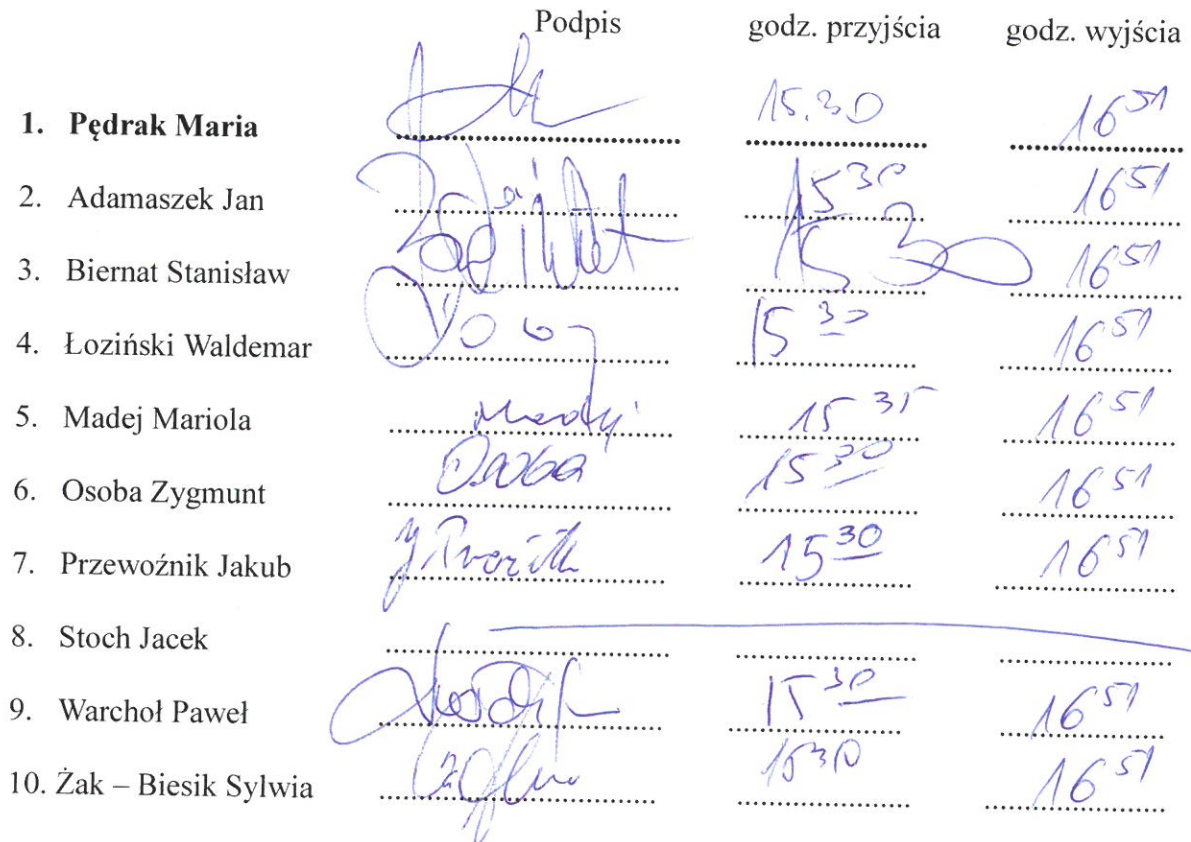 Podpis godz. przyjścia godz. wyjścia
1. Pędrak Maria 15.30 16 51
2. Adamaszek Jan 15 30 16 51
3. Biernat Stanisław 15 30 16 51
4. Łoziński Waldemar 15 30 16 51
5. Madej Mariola Madej 15 35 16 51
6. Osoba Zygmunt Osoba 15 30 16 51
7. Przewoźnik Jakub 15 30 16 51
8. Stoch Jacek
9. Warchoł Paweł 15 30 16 51
10. Żak – Biesik Sylwia 15 30 16 51